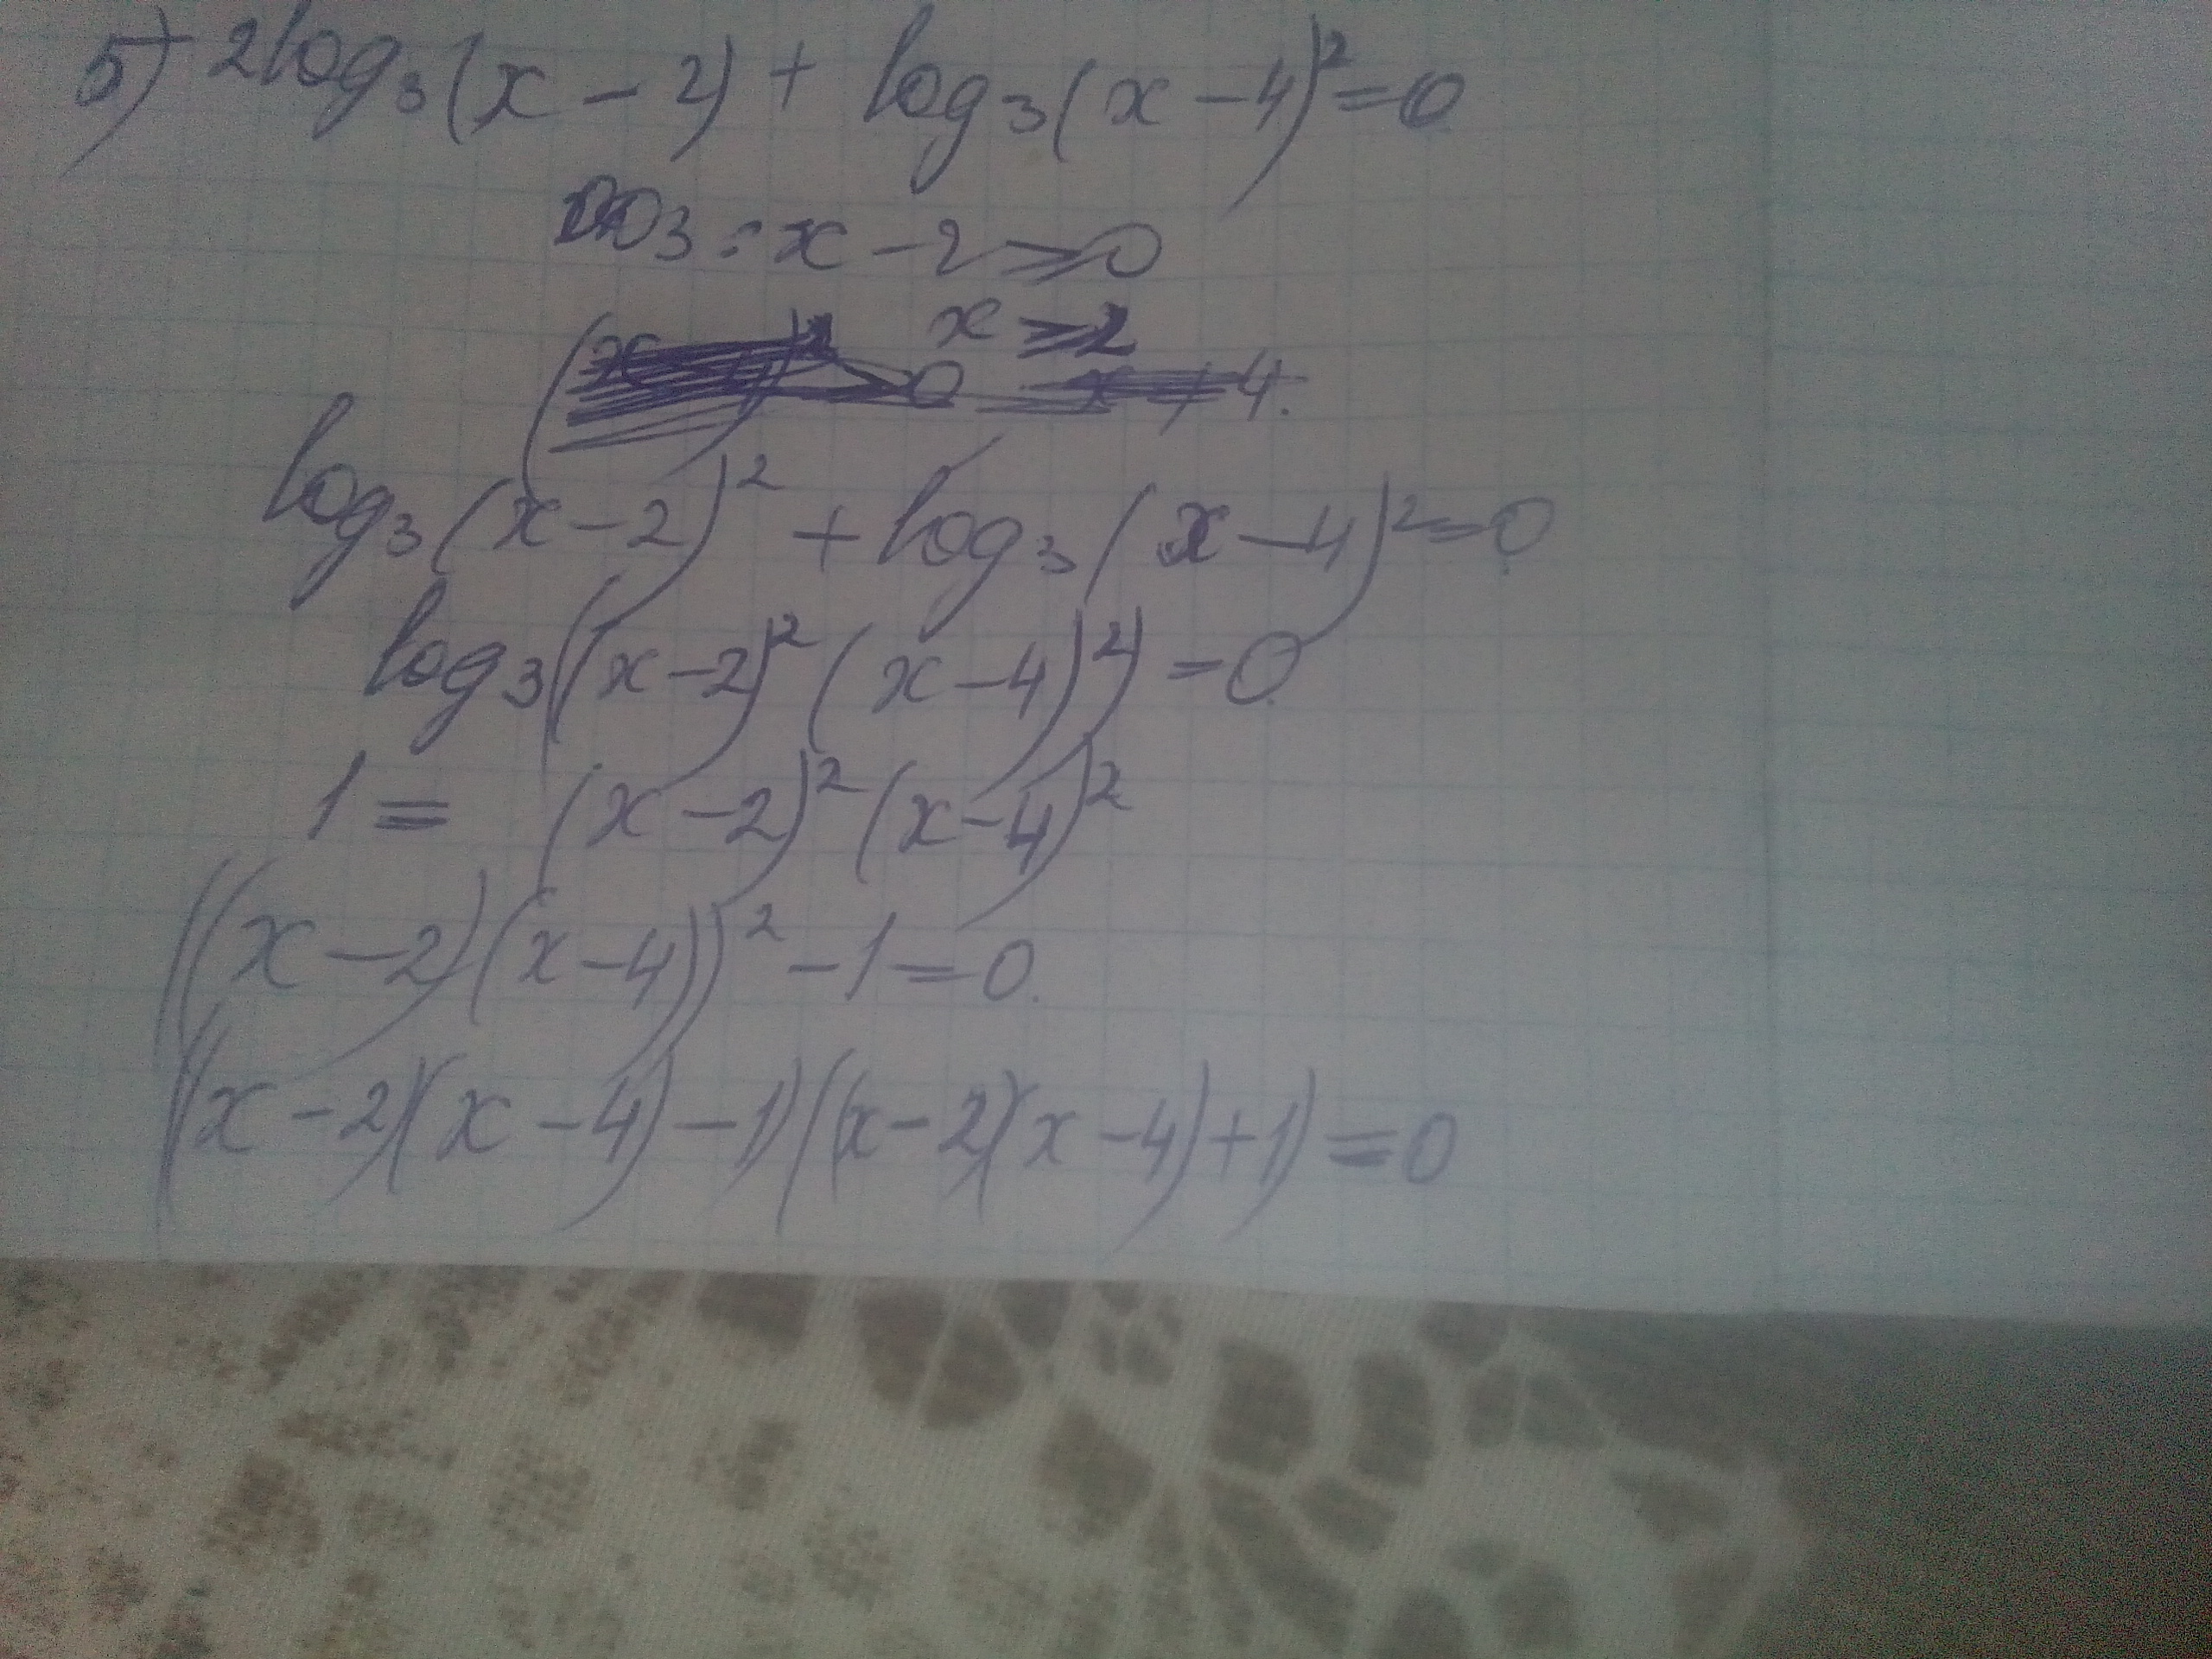 5) 2log₃(x-2) + log₃(x-4)² = 0
ОДЗ: x-2 ≥ 0
x ≥ 2
log₃(x-2)² + log₃(x-4)² = 0
log₃((x-2)²(x-4)²) = 0
1 = (x-2)²(x-4)²
((x-2)(x-4))² - 1 = 0.
((x-2)(x-4)-1)((x-2)(x-4)+1) = 0